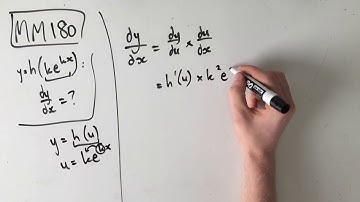 MM180
y=h(ke^{kx}):
dy/dx = ?
y = h(u)
u = ke^{kx}
dy/dx = dy/du × du/dx
= h'(u) × k²e